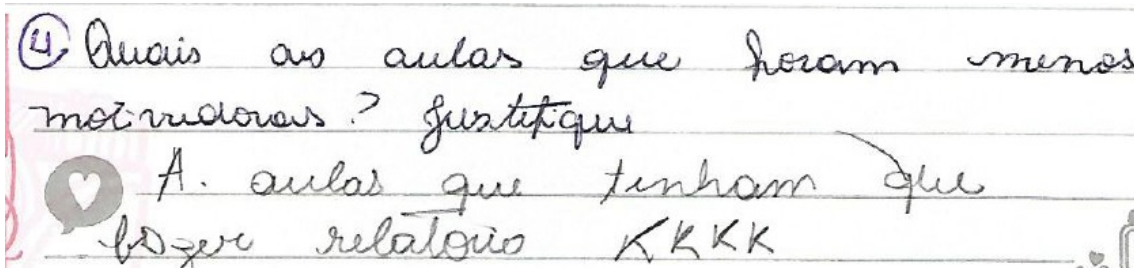 4 Quais as aulas que foram menos
motivadoras? Justifique
A. aulas que tinham que
fazer relatório KKKK